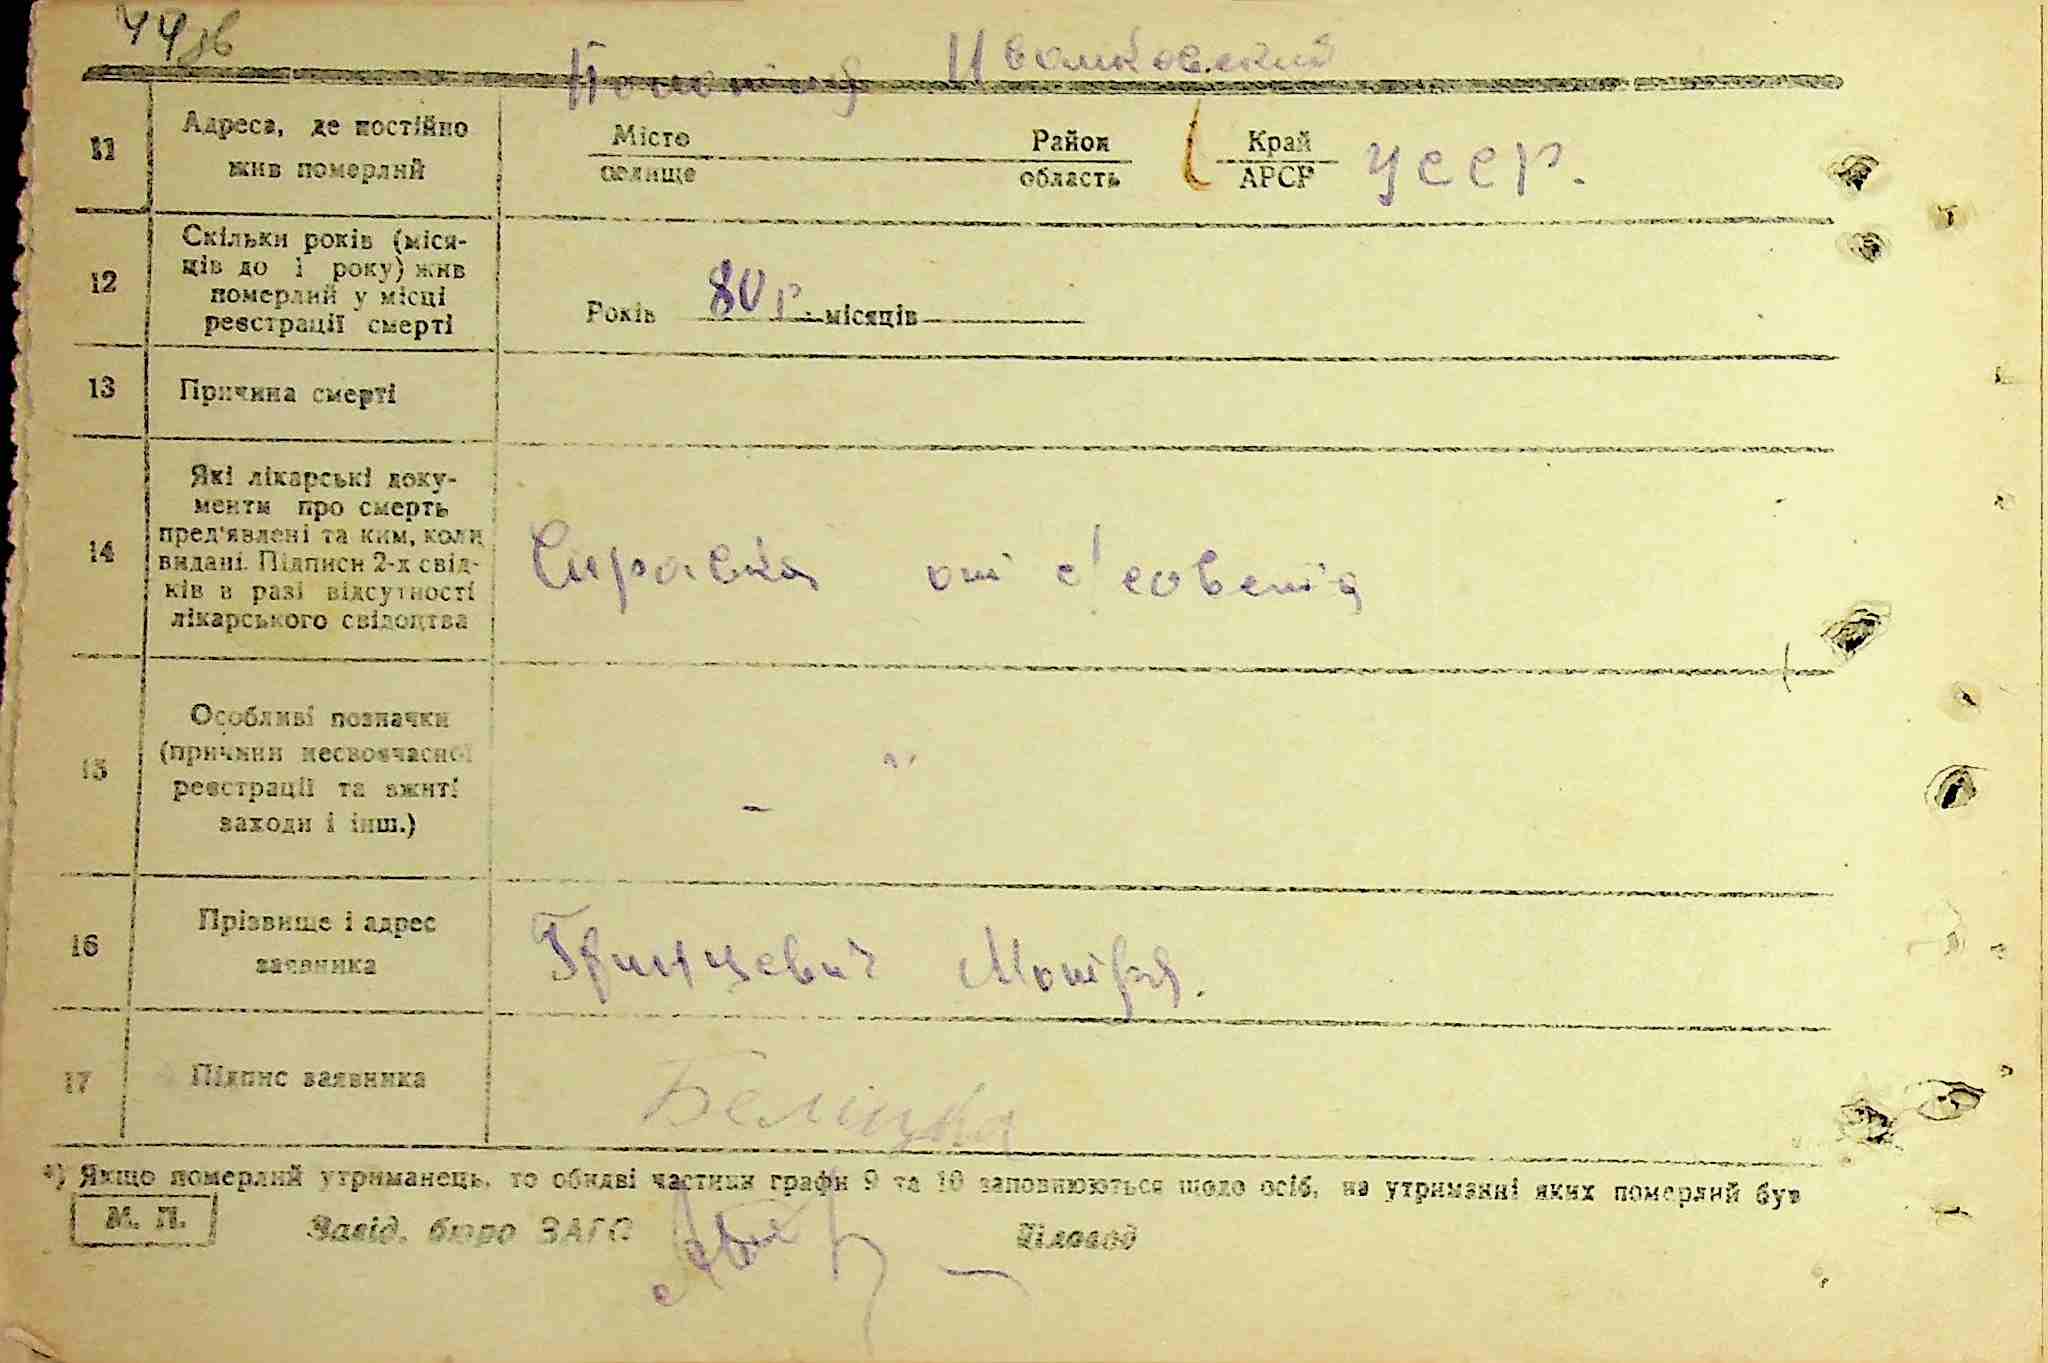 44
Иванковский
11
Адреса, де постійно
жив померлий
Місто
селище
Район
область
Край
АРСР
УССР.
12
Скільки років (міся-
ців до 1 року) жив
померлий у місці
реєстрації смерті
Років 80 р. місяців
13
Причина смерті
14
Які лікарські доку-
менти про смерть
пред'явлені та ким, коли
видані. Підписи 2-х свід-
ків в разі відсутності
лікарського свідоцтва
Справка от с/совета
15
Особливі позначки
(причини несвоєчасної
реєстрації та вжиті
заходи і інш.)
-
16
Прізвище і адрес
заявника
Мотря.
17
Підпис заявника
Беліцка
*) Якщо померлий утриманець, то обидві частини графи 9 та 10 заповнюються щодо осіб, на утриманні яких померлий був
М. П.
Завід. бюро ЗАГС
Діловод